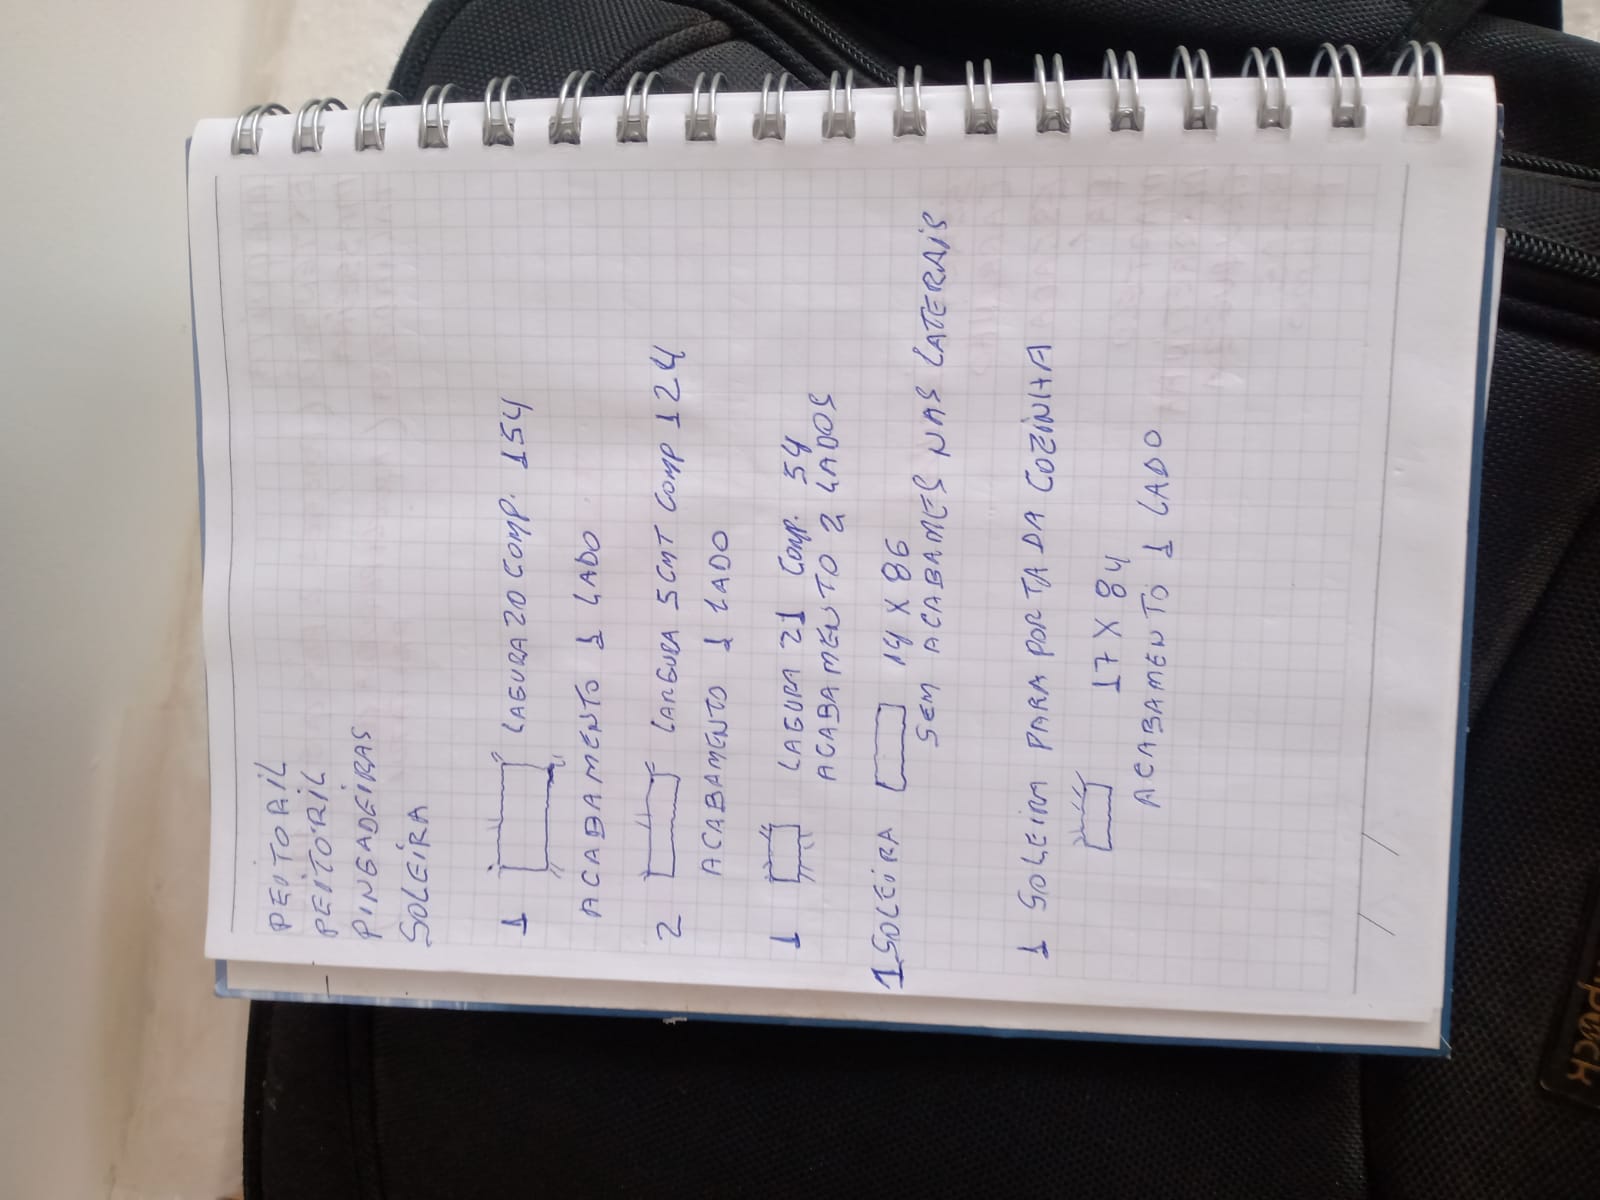 PEITORIL
PEITORIL
PINGADEIRAS
SOLEIRA
1 LAGURA 20 COMP. 154
ACABAMENTO 1 LADO
2 LARGURA 5 CMT COMP 124
ACABAMENTO 1 LADO
1 LAGURA 21 COMP. 54
ACABAMENTO 2 LADOS
1 SOLEIRA 14 X 86
SEM ACABAMES NAS LATERAIS
1 SOLEIRA PARA PORTA DA COZINHA
17 X 84
ACABAMENTO 1 LADO